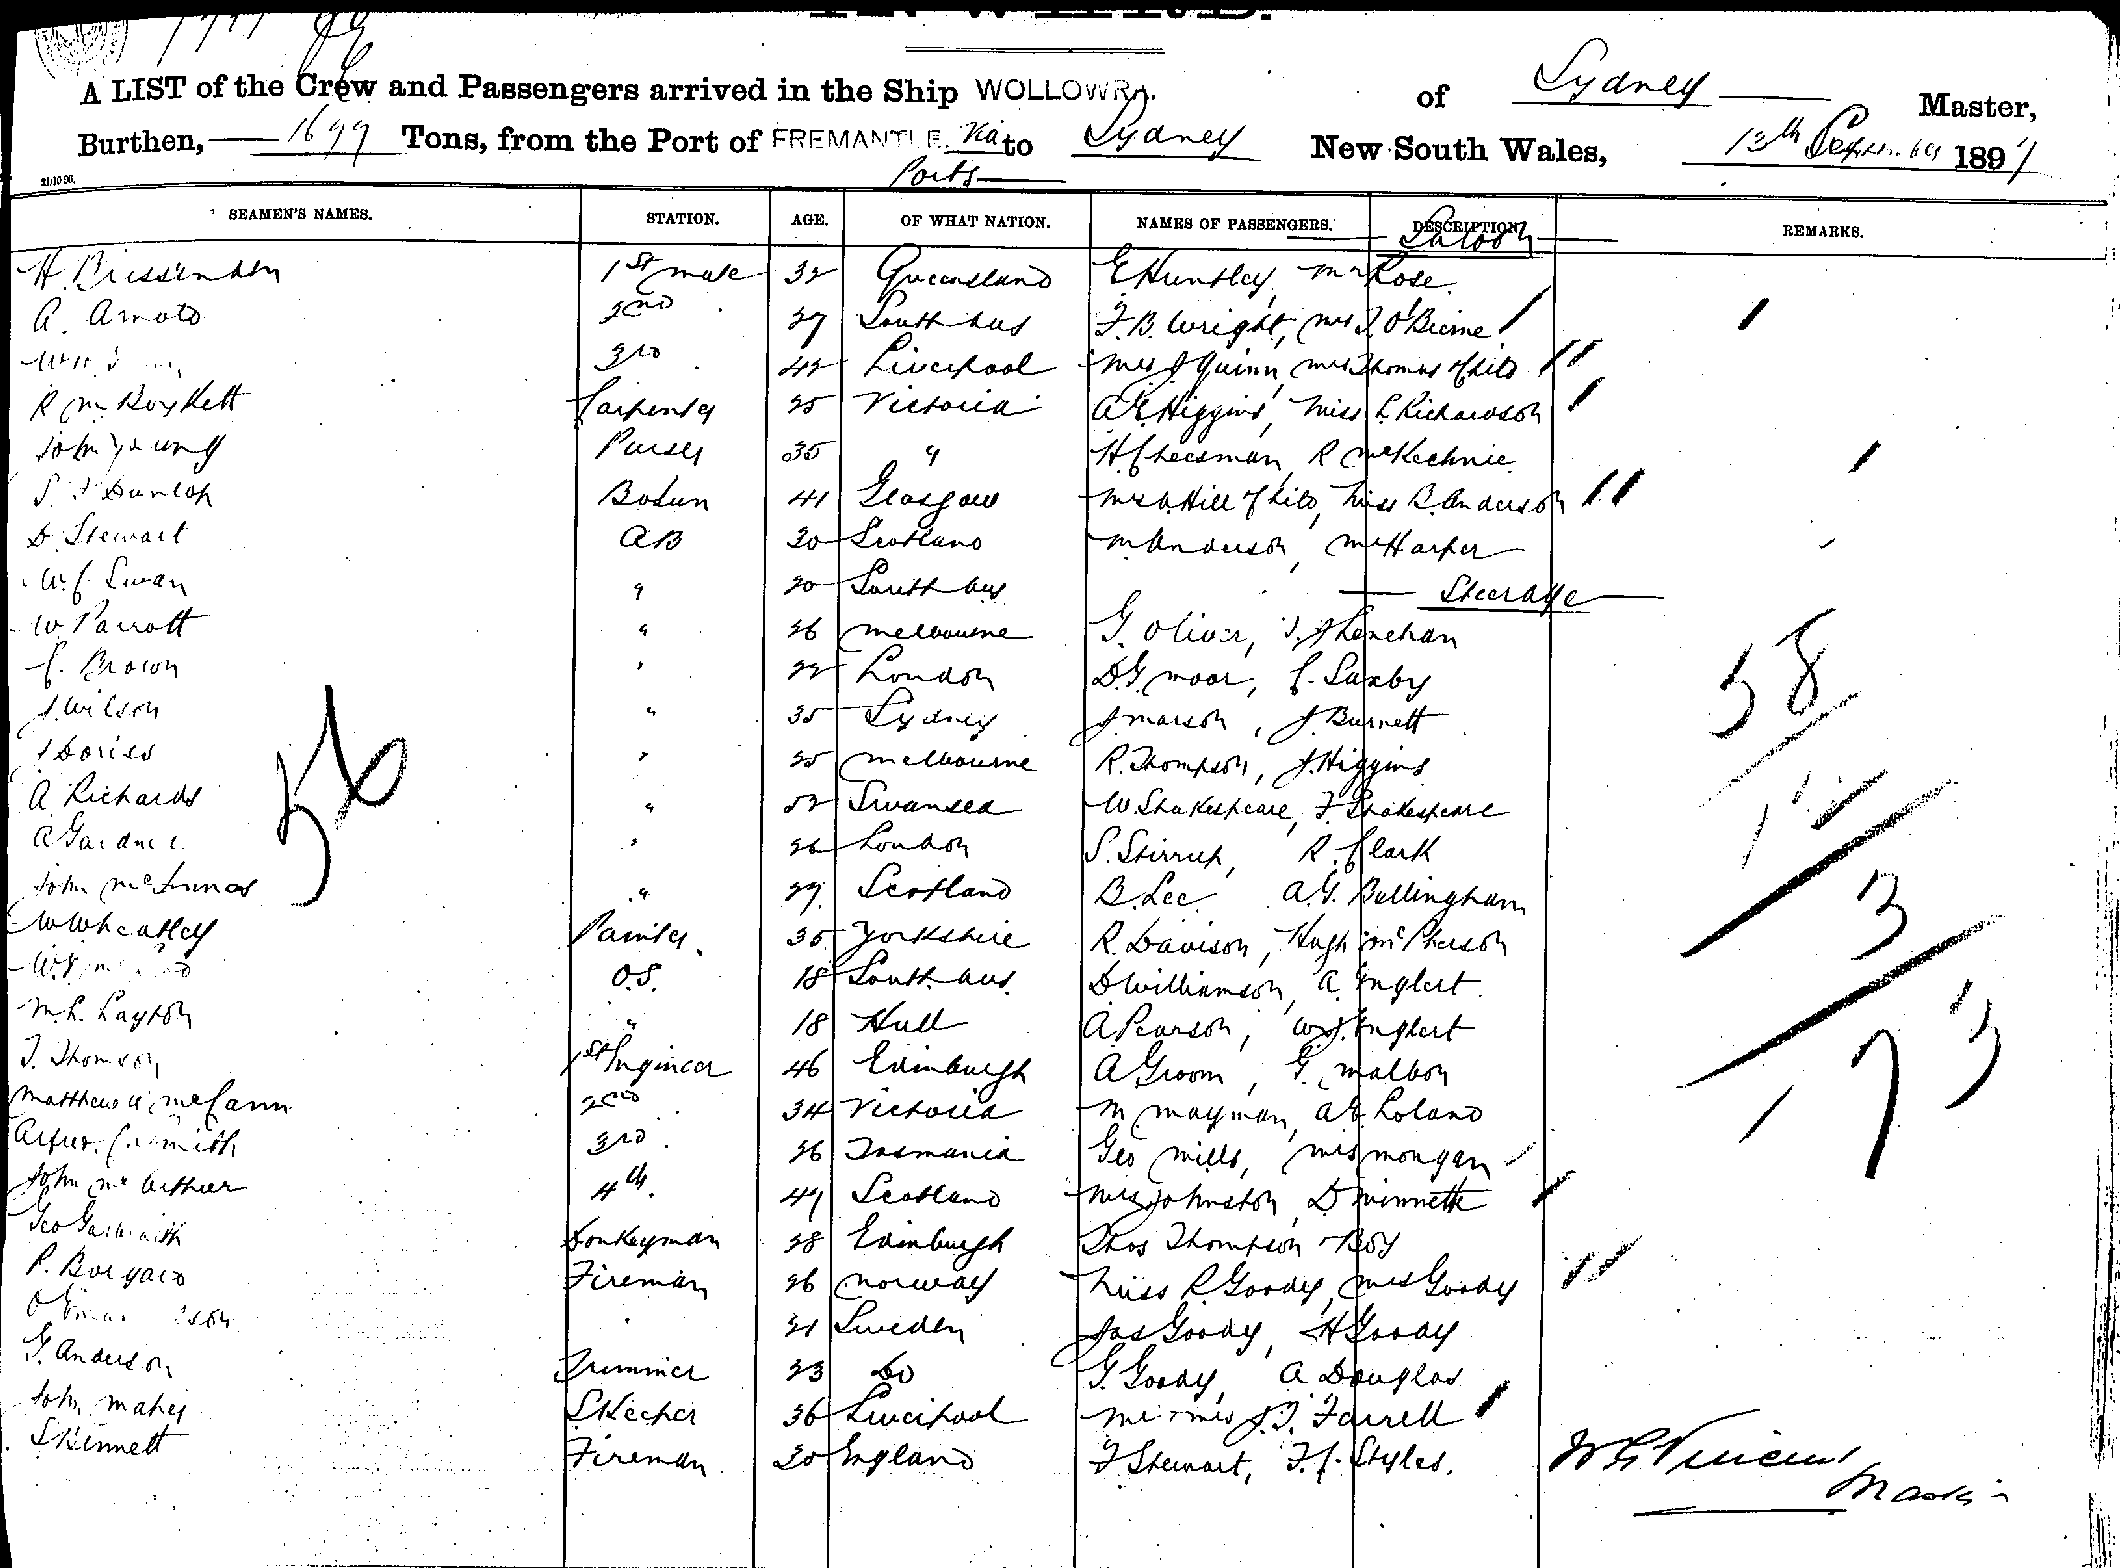 A LIST of the Crew and Passengers arrived in the Ship WOLLOWRA. of Sydney Master,
Burthen, 1699 Tons, from the Port of FREMANTLE Via Ports to Sydney New South Wales, 13th September 1897
21/10/96.
SEAMEN'S NAMES. STATION. AGE. OF WHAT NATION. NAMES OF PASSENGERS. DESCRIPTION. REMARKS.
Saloon
H. Brissenden 1st mate 32 Queensland E Huntley, Mr Rose.
A. Arnold 2nd 27 South Aus F. B. Wright, Mrs J. O'Beirne
3rd 42 Liverpool Mrs J Quinn, Mrs Thomas & Child
R M. Boykett Carpenter 25 Victoria A. E. Higgins, Miss L Richardson
John Young Purser 35 " H Cheesman, R McKechnie
Dunlop Bosun 41 Glasgow Mrs Hill & Child, Miss B. Anderson
D. Stewart AB 30 Scotland M Anderson, Mr Harper
W. C. Swan " 20 South Aus
Steerage
W Parrott " 26 Melbourne G. Oliver, Lenehan
C. Brown " 22 London D. G. Moor, C. Saxby
J. Wilson " 35 Sydney J Marson, J. Burnett
Doriss " 25 Melbourne R. Thompson, J. Higgins
A Richards " 52 Swansea W Shakespeare, F Shakespeare
A Gardner " 26 London S. Stirrup, R. Clark
John McInnes " 27 Scotland B. Lee A. G. Bullingham
W Wheatley Painter 35 Yorkshire R Davison, Hugh McPherson
O.S. 18 South Aus. D Williamson, A. Englert
M. L. Layton " 18 Hull A Pearson, W. J. Englert
T. Thomson 1st Engineer 46 Edinburgh A Groom, G. Malbon
Matthew McCann 2nd 34 Victoria M Mayman, A E Loland
Smith 3rd 26 Tasmania Geo Mills, Mrs Mongan
John McArthur 4th 47 Scotland Mrs Johnston, D Minnett
Geo Galbraith Donkeyman 28 Edinburgh Thos Thompson & Boy
P. Borgard Fireman 26 Norway Miss R. Goody, Mrs Goody
21 Sweden Jas Goody, H Goody
G. Anderson Trimmer 23 Do G. Goody, A Douglas
John Maher S Keeper 36 Liverpool Mr & Mrs J. T. Farrell
S Kennett Fireman 30 England F Stewart, F. C. Styles.
56
58
12
3
73
W G Vincent
Master